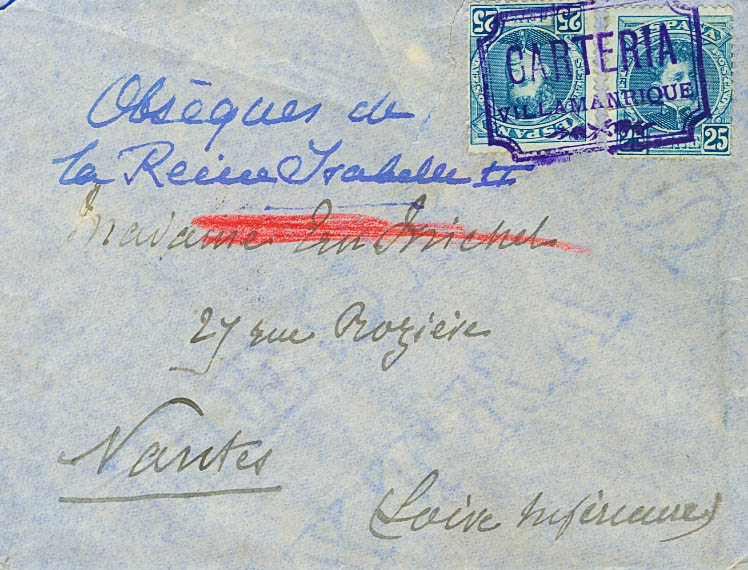 25 25
ESPAÑA
ESPAÑA
CARTERIA
VILLAMANRIQUE
25
Obsèques de
la Reine Isabelle II
Madame Michel
27 rue Rozière
Nantes
(Loire Inférieure)